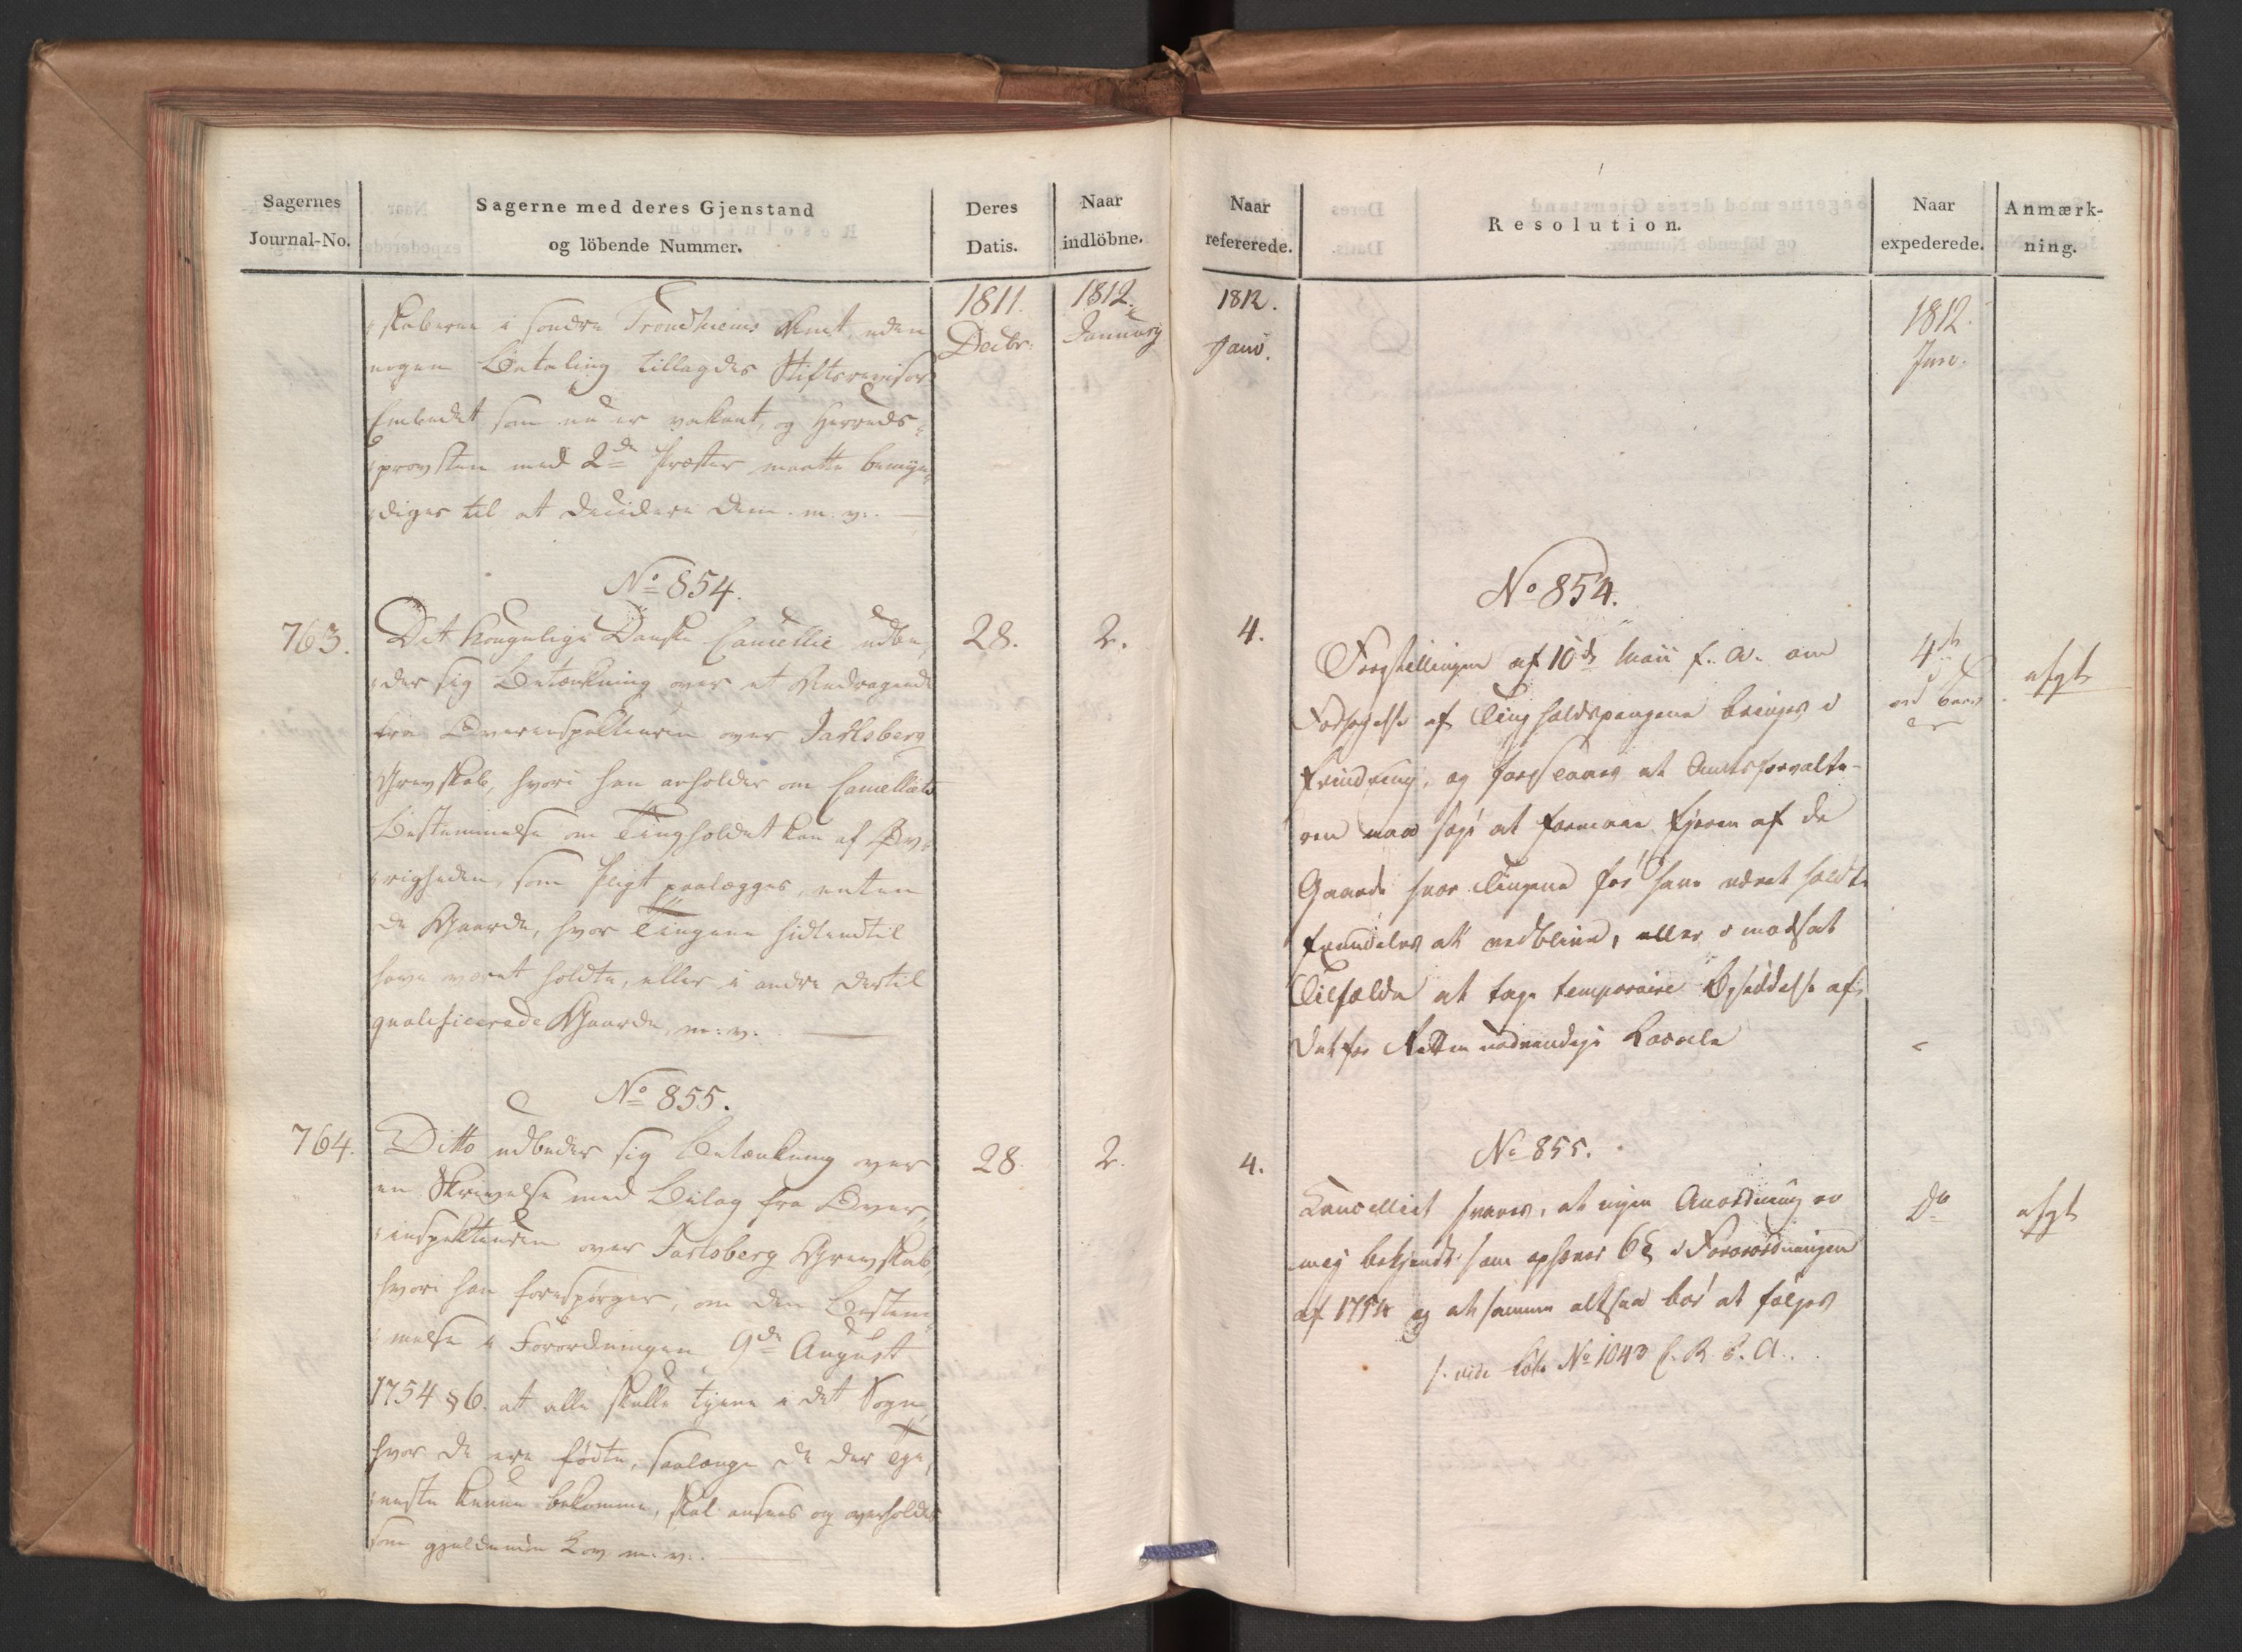 Sagernes
Journal-No.
Sagerne med deres Gjenstand
og löbende Nummer.
Deres
Datis.
Naar
indlöbne.
1811.
Decbr:
1812.
Januarj
skaberne i søndre Trondhiems Amt, uden
nogen Betaling tillagdes Stiftsrevisor
Embedet som nu er vakant, og Herreds-
provsten med 2de Præster maatte bemyn-
diges til at decidere dem. m. v.
No 854.
763.
Det kongelige Danske Cancellie udbe-
der sig Betænkning over et Andragende
fra Overinspekteuren over Jarlsberg
Grevskab, hvori han anholder om Cancelliets
Bestemmelse om Tingholdet kan af Øv-
righeden, som Pligt paalægges, enten
de Gaarde, hvor Tingene hidtendtil
have været holdte, eller i andre dertil
qualificerede Gaarde, m: v.
28.
2.
No 855.
764.
Ditto udbeder sig Betænkning over
en Skrivelse med Bilag fra Over-
inspekteuren over Jarlsberg Grevskab,
hvori han forespørger, om den Bestem-
melse i Forordningen 9de August
1754 § 6. at alle skulle tjene i det Sogn,
hvor de ere fødte, saalænge de der Tje-
neste kunne bekomme, skal ansees og overholdes
som gjeldende Lov m. v.
28.
2.
Naar
refererede.
Resolution.
Naar
expederede.
Anmærk-
ning.
1812.
Janv.
1812.
No 854.
4.
Forestillingen af 10de Maii f. A. om
af Tingholdspengene bringes i
Erindring, og at Amtsforvalte-
ren maa at formaae Ejeren af de
Gaarde hvor Tingene før have været holdte
fremdeles at vedblive, eller i modsat
Tilfælde at tage temporaire af
det for Retten nødvendige Locale
4de
afgt
No 855.
4.
Cancelliet svares, at ingen Anordning er
mig bekjendt som ophæver 6 § i Forordningen
af 1754 og at samme altsaa bør at følges
vide No 1043
Do
afgt